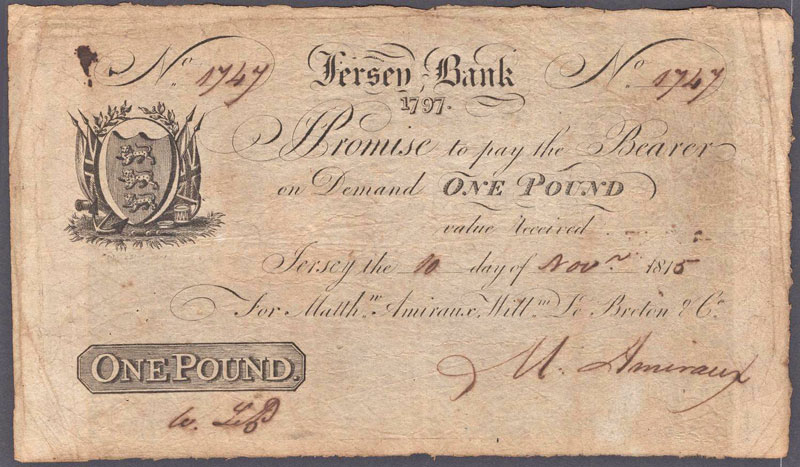 No 1747 Jersey Bank No 1747
1797.
I Promise to pay the Bearer
on Demand ONE POUND
value received
Jersey the 10 day of Novr 1815
For Matthw Amiraux, Willm Le Breton & Co
ONE POUND.
M. Amiraux
W. LeB